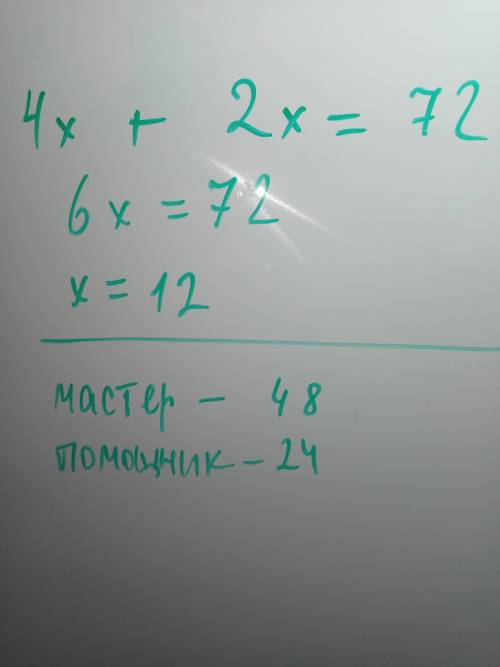 4x + 2x = 72
6x = 72
x = 12
мастер - 48
помощник - 24